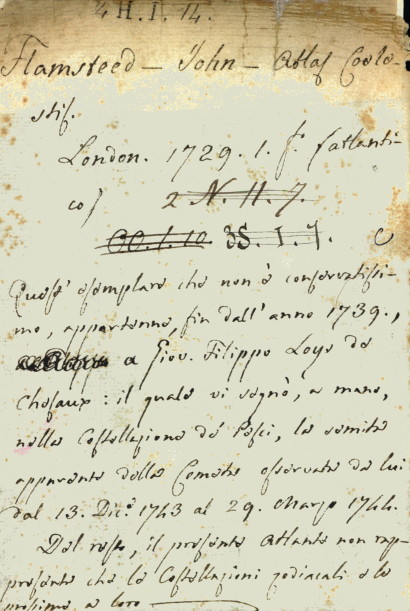 4 H. I. 14.
Flamsteed – John – Atlas Coele-
stis.
London. 1729. 1. f.° (atlanti-
co)
2 N. II. 7.
OO. I. 10. 3S. I. 7.
Quest' esemplare che non è conservatissi-
mo, appartenne, fin dall' anno 1739.,
a Giov. Filippo Loys de
Chesaux: il quale vi segnò, a mano,
nella Costellazione de' Pesci, la semita
apparente della Cometa osservata da lui
dal 13. Dic.e 1743 al 29. Marzo 1744.
Del resto, il presente Atlante non rap-
presenta che le Costellazioni zodiacali e le
prossime a loro